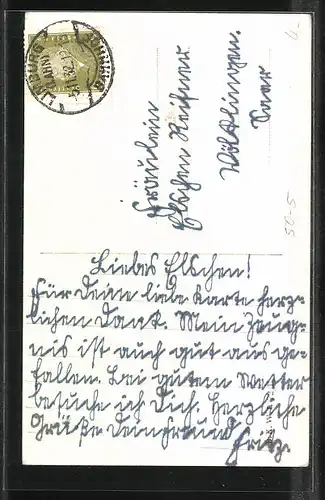 LIMBURG
(LAHN)
Fräulein
Elschen Reichner
Völklingen.
Saar
50-5
Liebes Elschen!
Für Deine liebe Karte herz-
lichen Dank. Mein Zeug-
nis ist auch gut aus ge-
fallen. Bei gutem Wetter
besuche ich Dich. Herzliche
Grüße Dein Freund
Fritz.